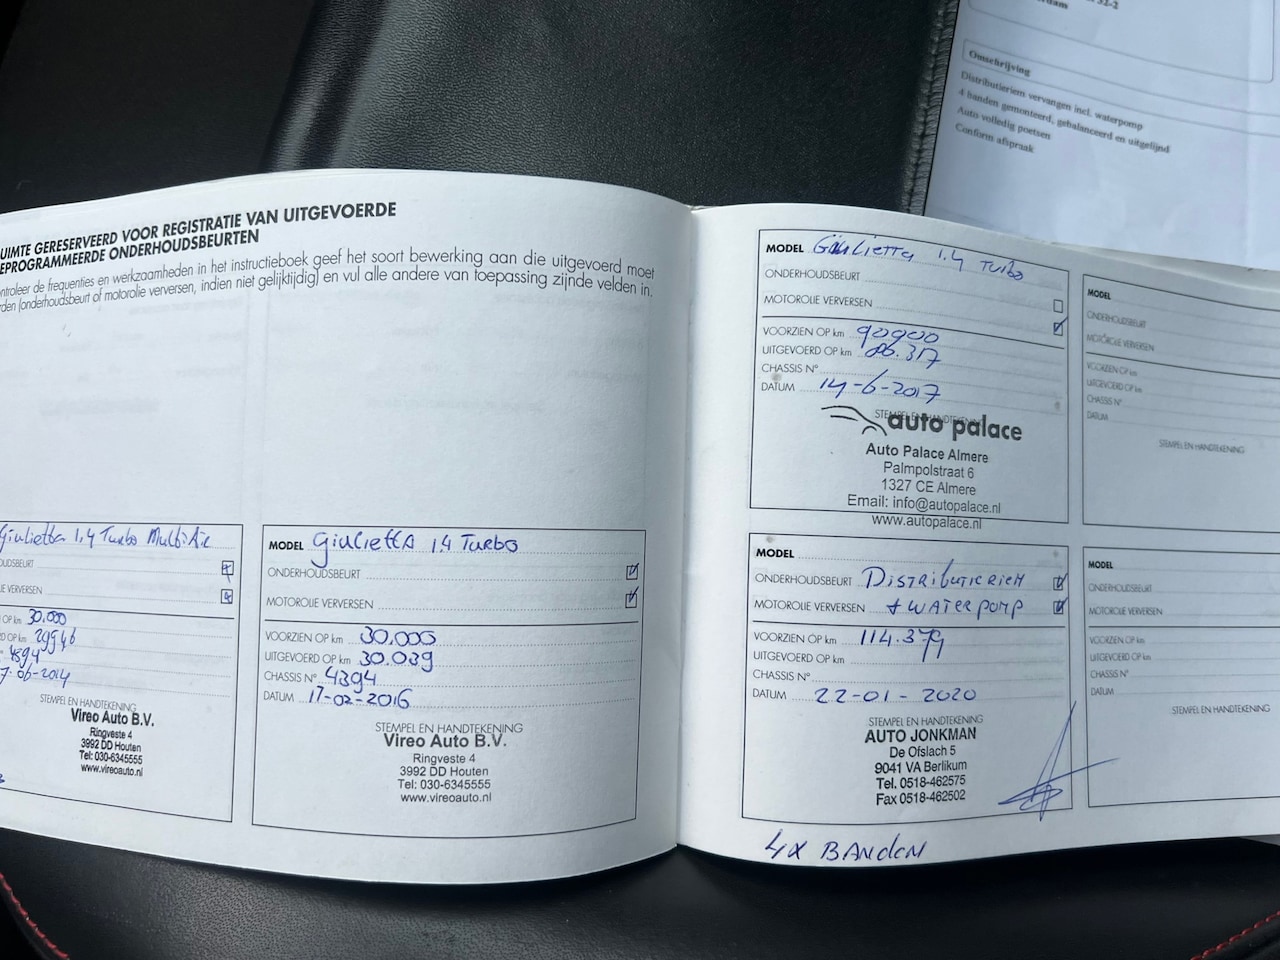 32-2
Omschrijving
Distributieriem vervangen incl. waterpomp
4 banden gemonteerd, gebalanceerd en uitgelijnd
Auto volledig poetsen
Conform afspraak
UIMTE GERESERVEERD VOOR REGISTRATIE VAN UITGEVOERDE
EPROGRAMMEERDE ONDERHOUDSBEURTEN
ntroleer de frequenties en werkzaamheden in het instructieboek geef het soort bewerking aan die uitgevoerd moet
rden (onderhoudsbeurt of motorolie verversen, indien niet gelijktijdig) en vul alle andere van toepassing zijnde velden in.
Giulietta 1.4 Turbo MultiAir
OUDSBEURT
IE VERVERSEN
OP km 30.000
D OP km 29946
4394
7-06-2014
STEMPEL EN HANDTEKENING
Vireo Auto B.V.
Ringveste 4
3992 DD Houten
Tel: 030-6345555
www.vireoauto.nl
MODEL Giulietta 1.4 Turbo
ONDERHOUDSBEURT
MOTOROLIE VERVERSEN
VOORZIEN OP km 30.000
UITGEVOERD OP km 30.039
CHASSIS N° 4394
DATUM 17-02-2016
STEMPEL EN HANDTEKENING
Vireo Auto B.V.
Ringveste 4
3992 DD Houten
Tel: 030-6345555
www.vireoauto.nl
MODEL Giulietta 1.4 Turbo
ONDERHOUDSBEURT
MOTOROLIE VERVERSEN
VOORZIEN OP km 90900
UITGEVOERD OP km 86.317
CHASSIS N°
DATUM 14-6-2017
STEMPEL EN HANDTEKENING
auto palace
Auto Palace Almere
Palmpolstraat 6
1327 CE Almere
Email: info@autopalace.nl
www.autopalace.nl
MODEL
ONDERHOUDSBEURT
MOTOROLIE VERVERSEN
VOORZIEN OP km
UITGEVOERD OP km
CHASSIS N°
DATUM
STEMPEL EN HANDTEKENING
MODEL
ONDERHOUDSBEURT DISTRIBUTIERIEM
MOTOROLIE VERVERSEN + WATERPOMP
VOORZIEN OP km 114.379
UITGEVOERD OP km
CHASSIS N°
DATUM 22-01-2020
STEMPEL EN HANDTEKENING
AUTO JONKMAN
De Ofslach 5
9041 VA Berlikum
Tel. 0518-462575
Fax 0518-462502
4X BANDEN
MODEL
ONDERHOUDSBEURT
MOTOROLIE VERVERSEN
VOORZIEN OP km
UITGEVOERD OP km
CHASSIS N°
DATUM
STEMPEL EN HANDTEKENING